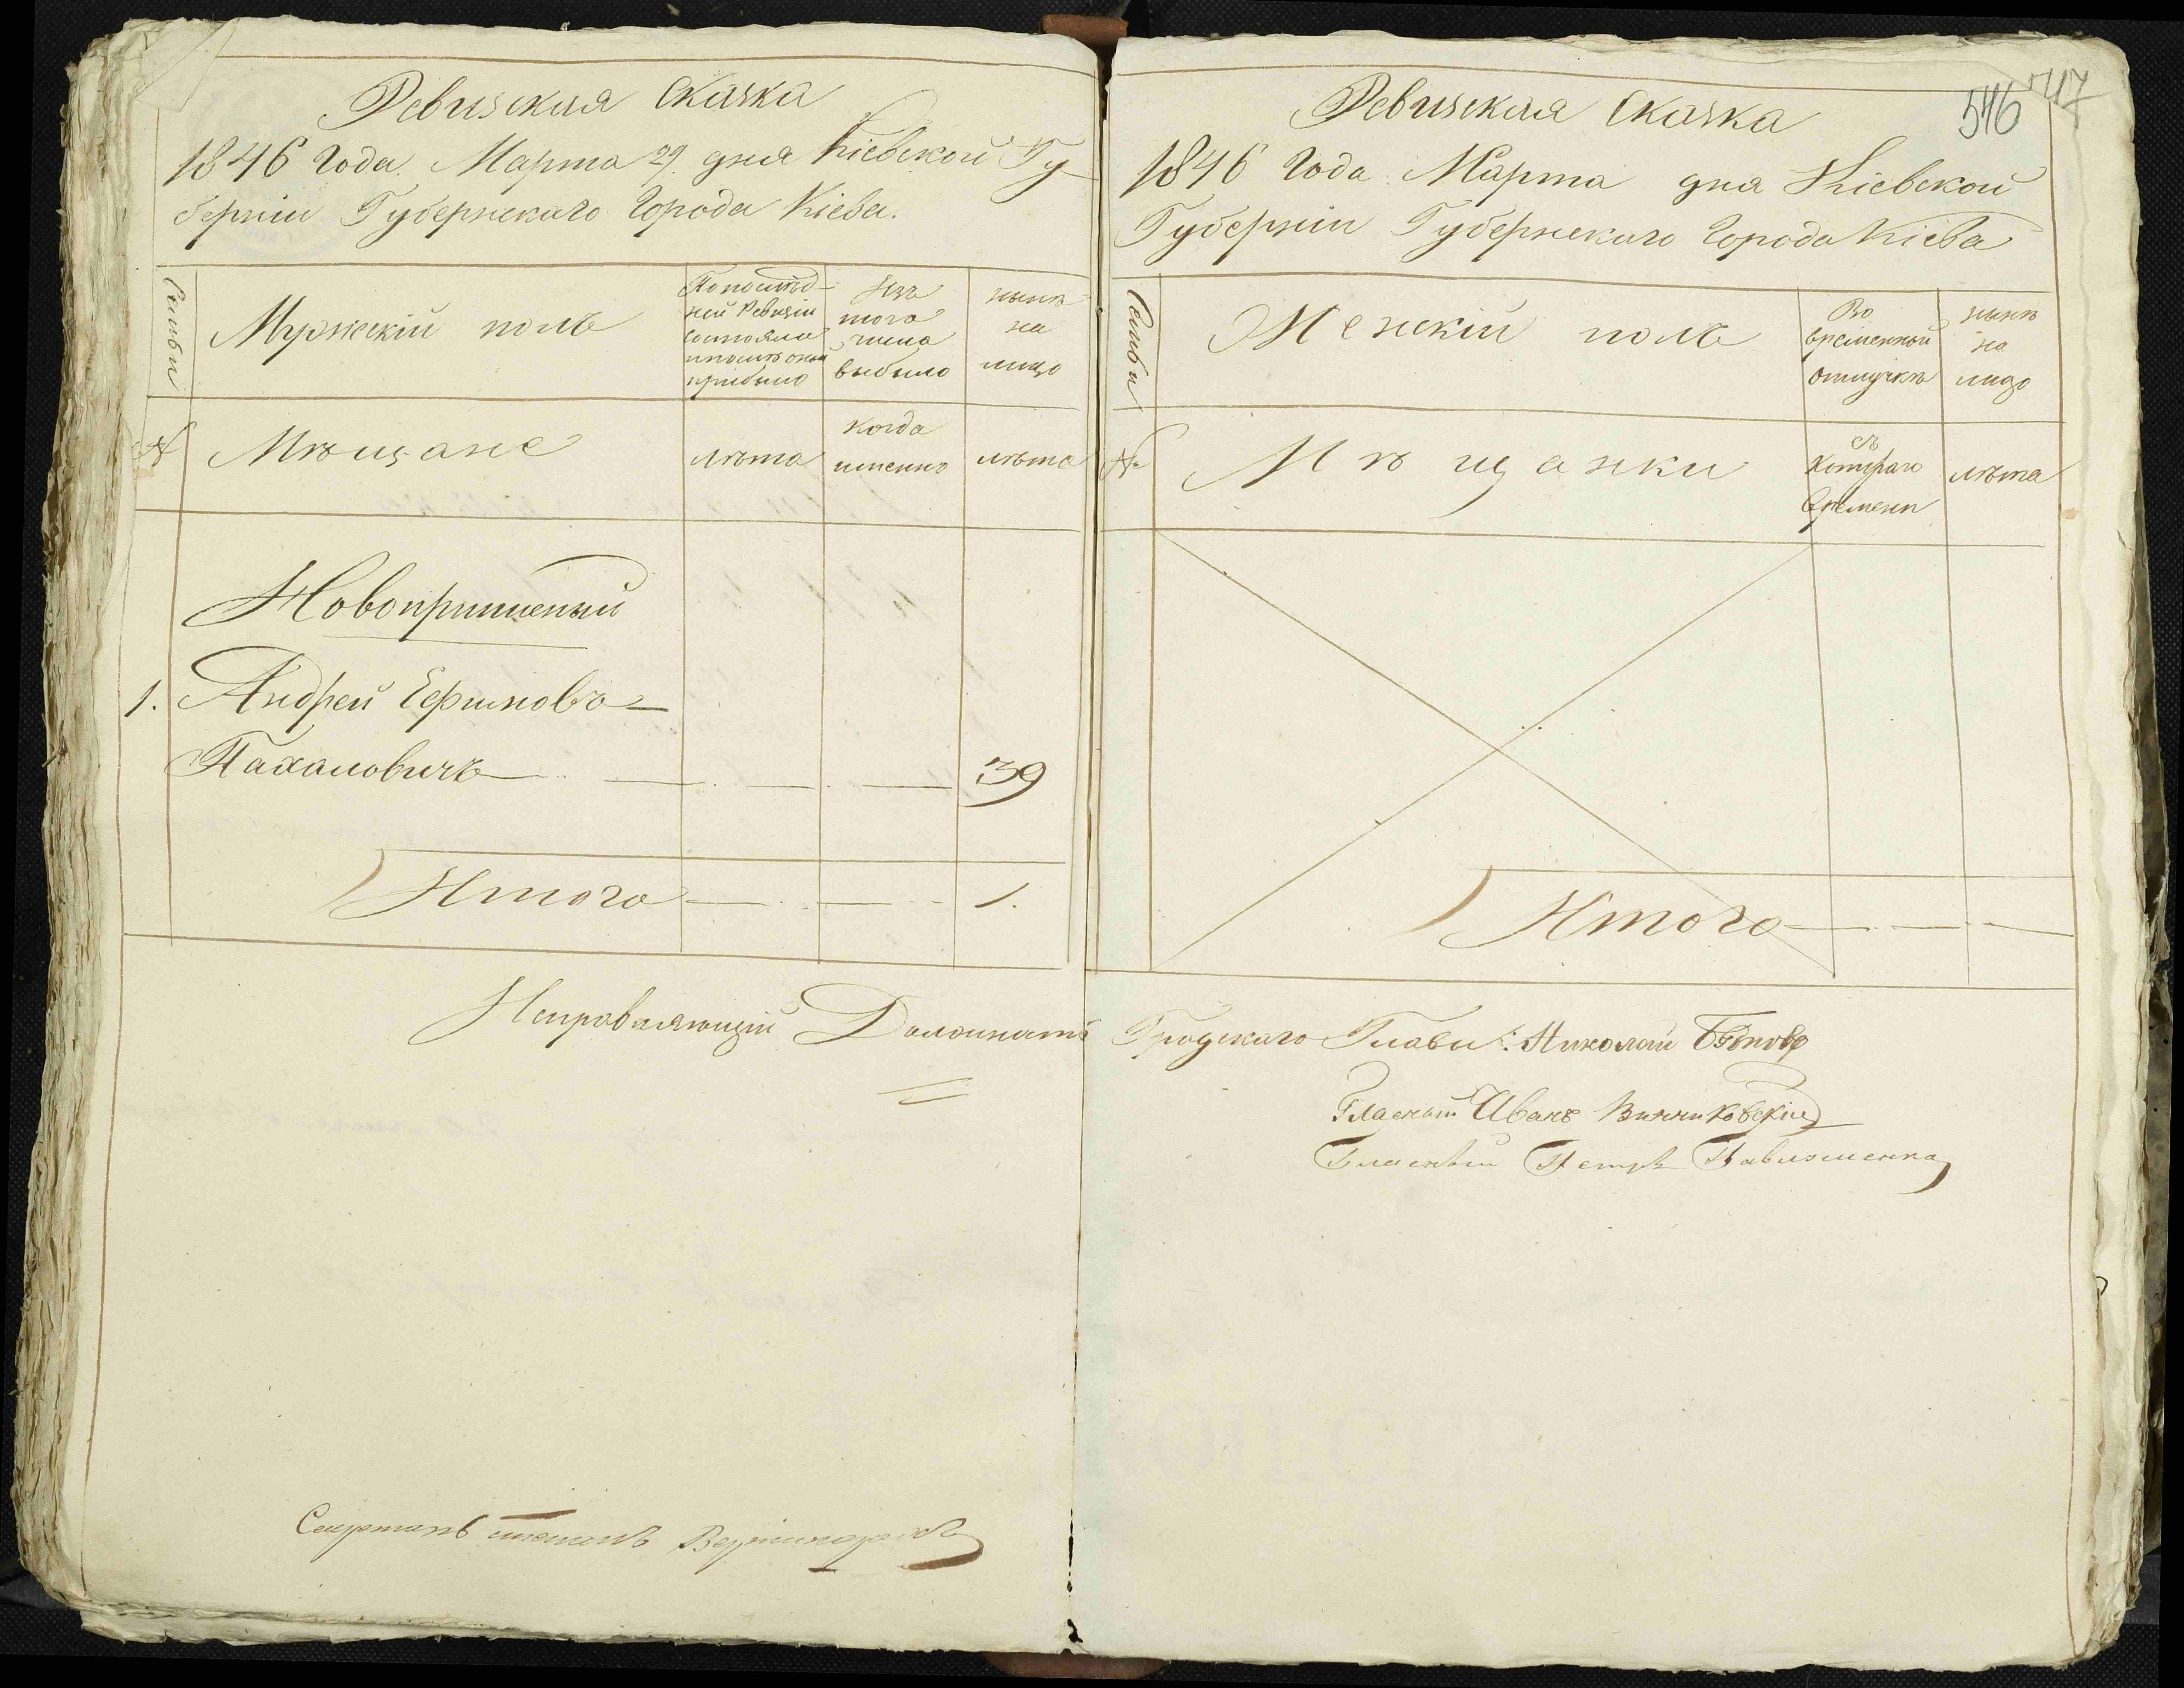 Ревизская Сказка
1846 Года Марта 29 дня Кіевской Гу
берніи Губернскаго Города Кіева.
Семьи
Мужескій полъ
По послѣд-
ней Ревизіи
состояло
и послѣ оной
прибыло
Изъ
того
числа
выбыло
нынѣ
на
лицо
№
Мѣщане
лѣта
когда
именно
лѣта
Новоприписной
1. Андрей Ефимовъ
Пахаловичъ 39
Итого 1.
Исправляющій Должность
Секретарь
546
717
Ревизская Сказка
1846 Года Марта дня Кіевской
Губерніи Губернскаго Города Кіева
Семьи
Женскій полъ
Во
временной
отлучкѣ
нынѣ
на
лицо
№
Мѣщанки
съ
котораго
времени
лѣта
Итого
Градскаго Главы: Николай
Гласный Иванъ Винниковскій
Гласный Петръ